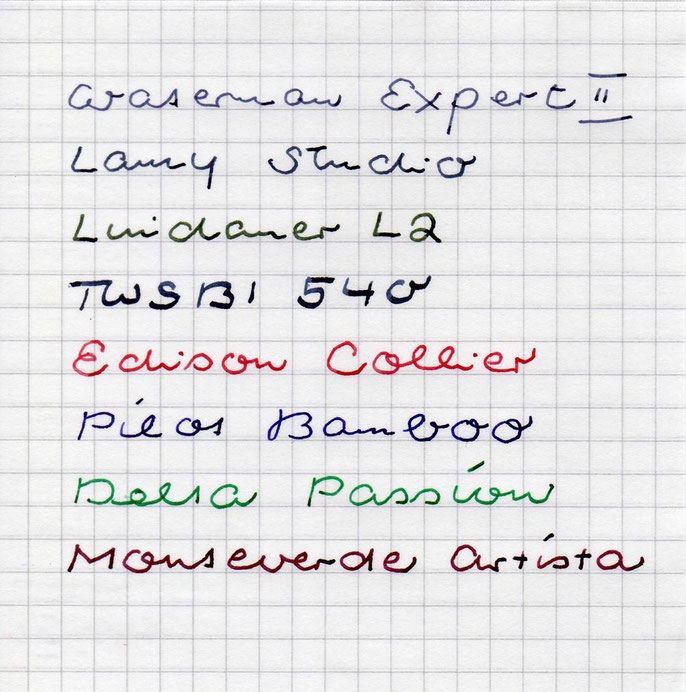 Waterman Expert II
Lamy Studio
Lindauer L2
TWSBI 540
Edison Collier
Pilot Bamboo
Delta Passion
Monteverde Artista